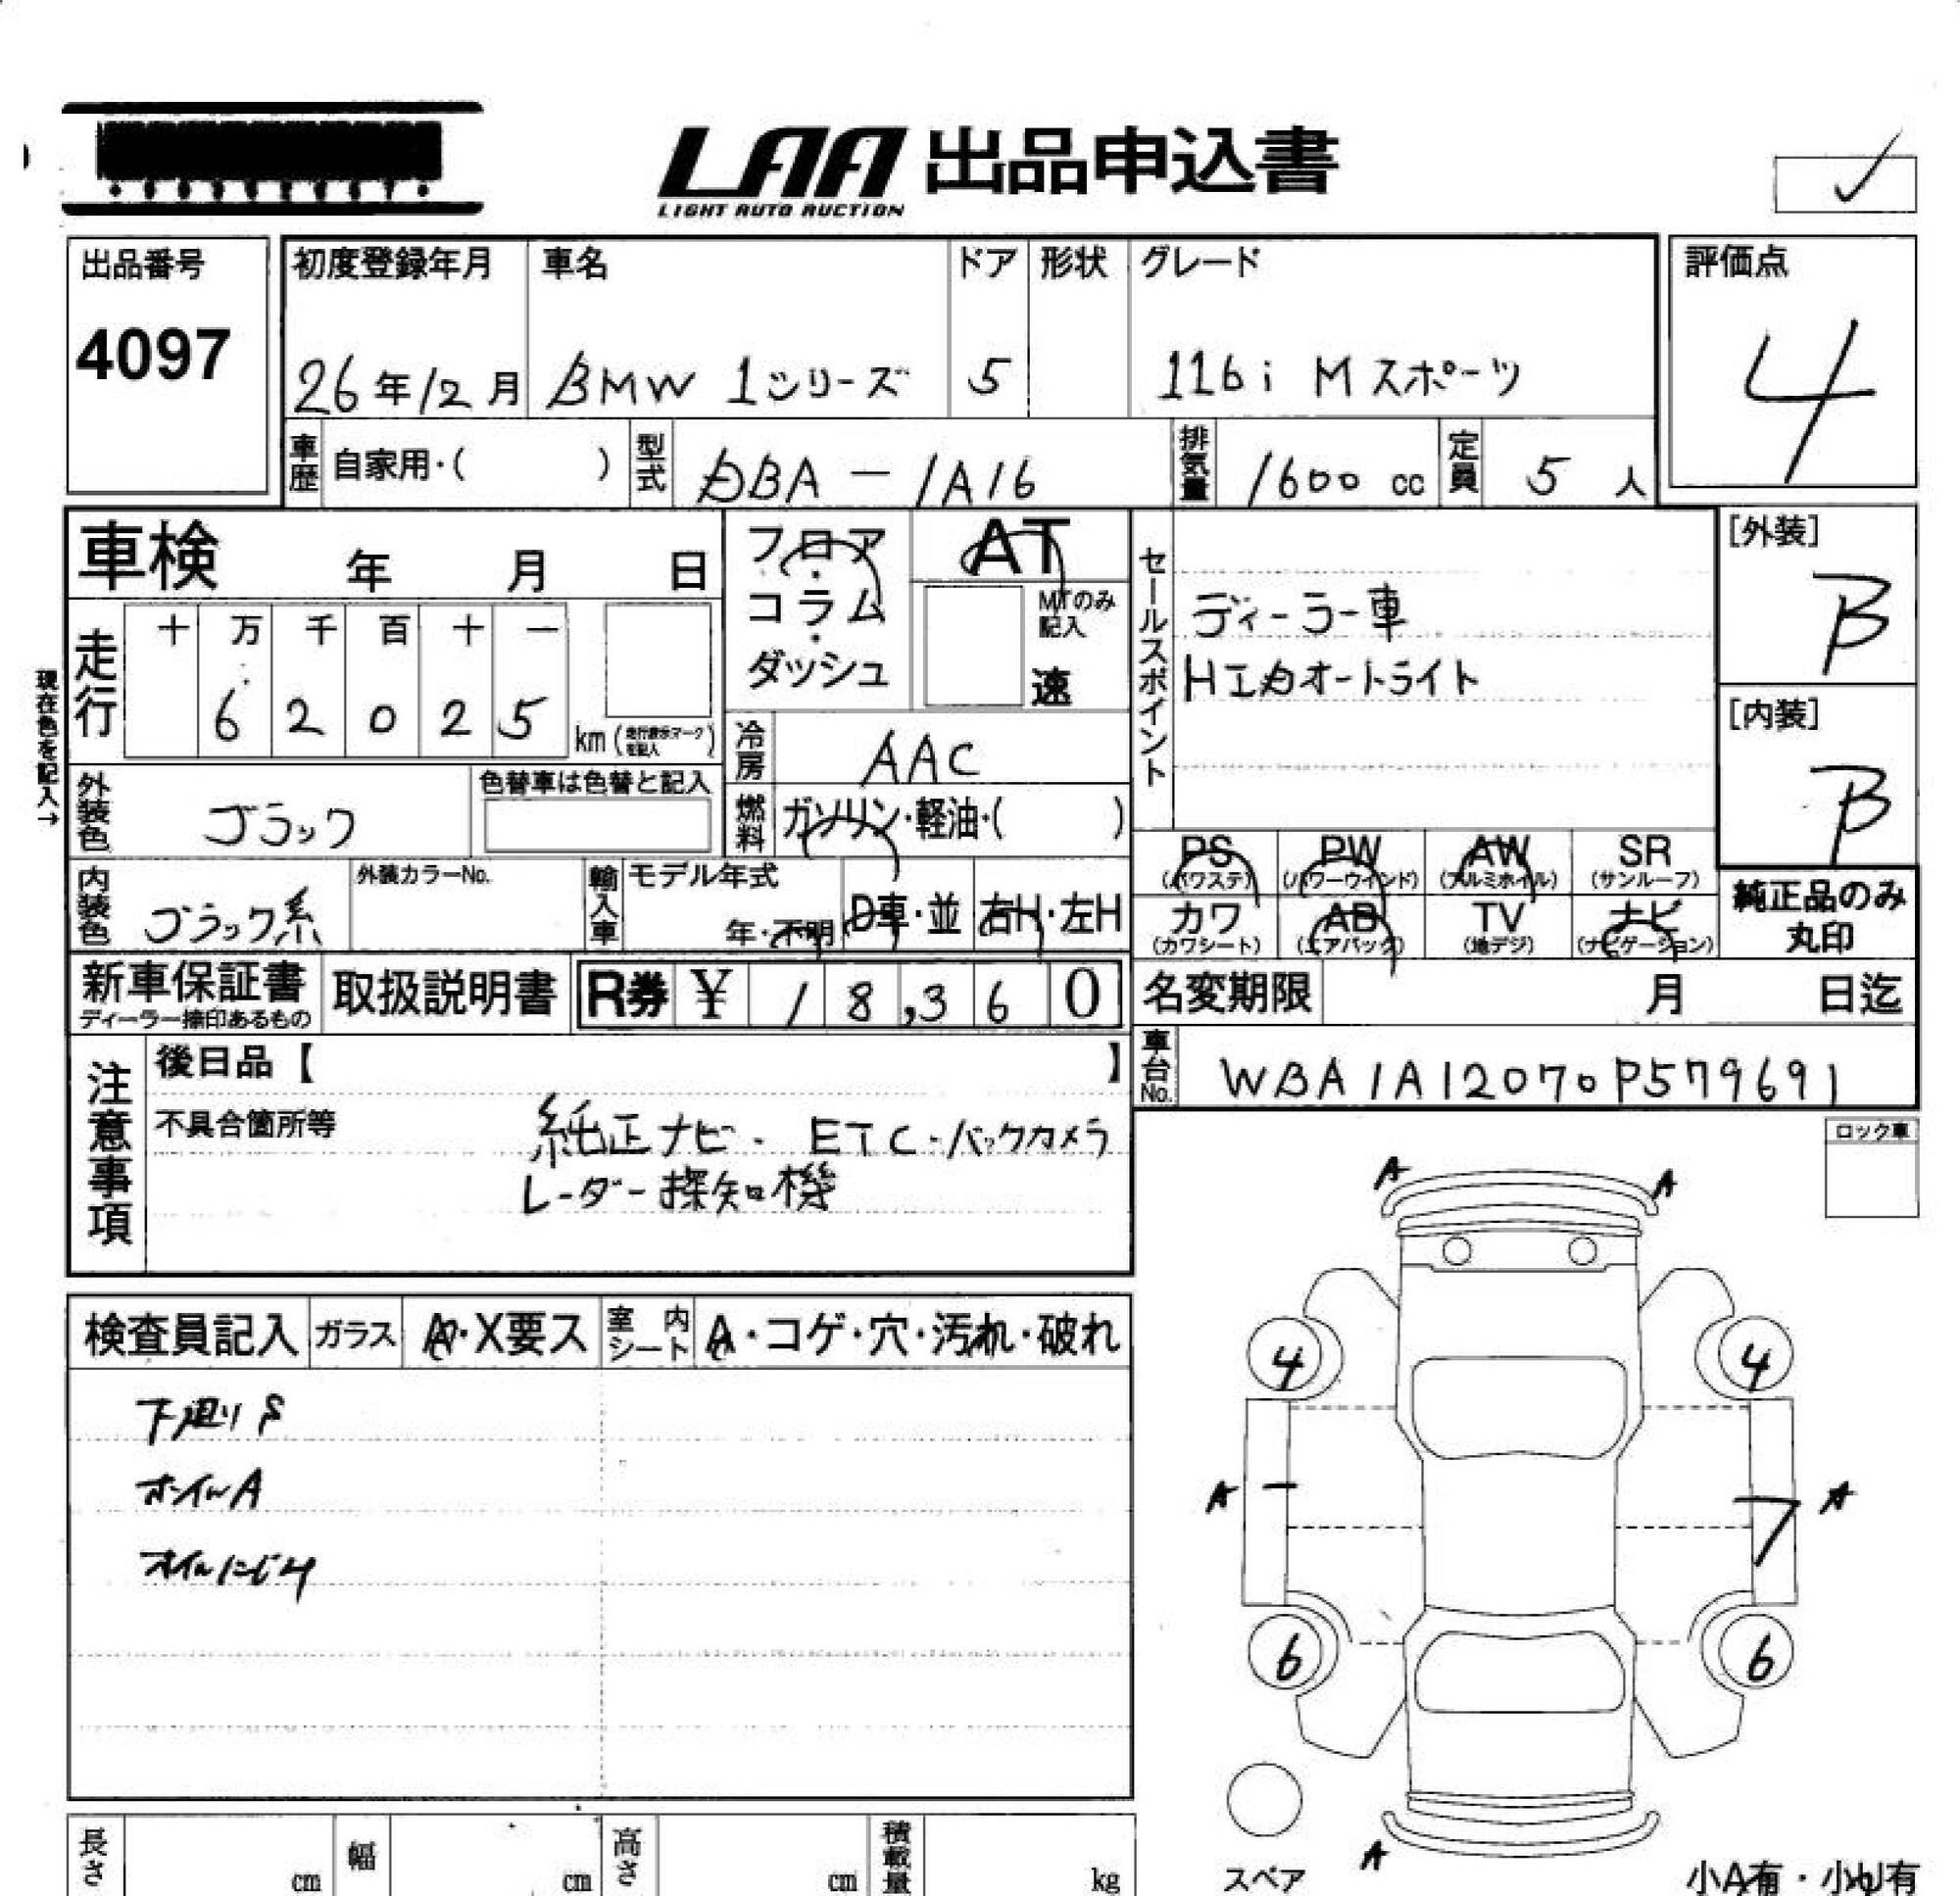 LAA 出品申込書
LIGHT AUTO AUCTION
出品番号
4097
初度登録年月
26年12月
車名
BMW 1シリーズ
ドア
5
形状
グレード
116i Mスポーツ
評価点
4
車歴 自家用・( )
型式 DBA-1A16
排気量 1600 cc
定員 5 人
車検 年 月 日
フロア・コラム・ダッシュ
AT
MTのみ記入
速
セールスポイント
ディーラー車
Hエカオートライト
[外装]
B
[内装]
B
現在色を記入→
走行
十 万 千 百 十 一
6 2 0 2 5
km (走行表示マークを記入)
冷房 AAC
燃料 ガソリン・軽油・( )
外装色 ブラック
色替車は色替と記入
内装色 ブラック系
外装カラーNo.
輸入車 モデル年式
年・不明
D車・並
右H・左H
PS (パワステ)
PW (パワーウインド)
AW (アルミホイル)
SR (サンルーフ)
カワ (カワシート)
AB (エアバック)
TV (地デジ)
ナビ (ナビゲーション)
純正品のみ丸印
新車保証書
ディーラー捺印あるもの
取扱説明書
R券 ¥ 18,360
名変期限 月 日迄
車台No. WBA1A12070P579691
注意事項
後日品【 】
不具合箇所等
純正ナビ・ETC・バックカメラ
レーダー探知機
ロック車
検査員記入
ガラス A・X要ス
室内シート A・コゲ・穴・汚れ・破れ
下廻りS
ホイルA
オイルにじみ
A A
4 4
A A
6 6
A
スペア
小A有・小U有
長さ cm
幅 cm
高さ cm
積載量 kg